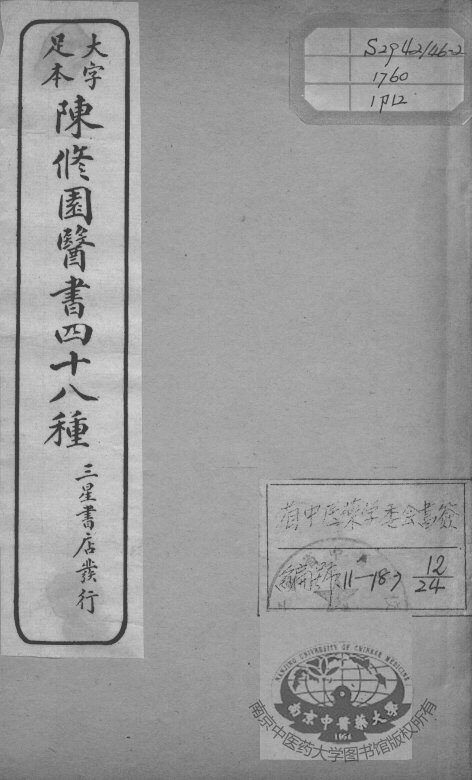 大字
足本
陳修園醫書四十八種
三星書店發行
S2942/46-2
1760
1p12
省中医藥学委会書簽
編號11-187 12/24
NANJING UNIVERSITY OF CHINESE MEDICINE
南京中醫藥大學
1954
南京中医药大学图书馆版权所有